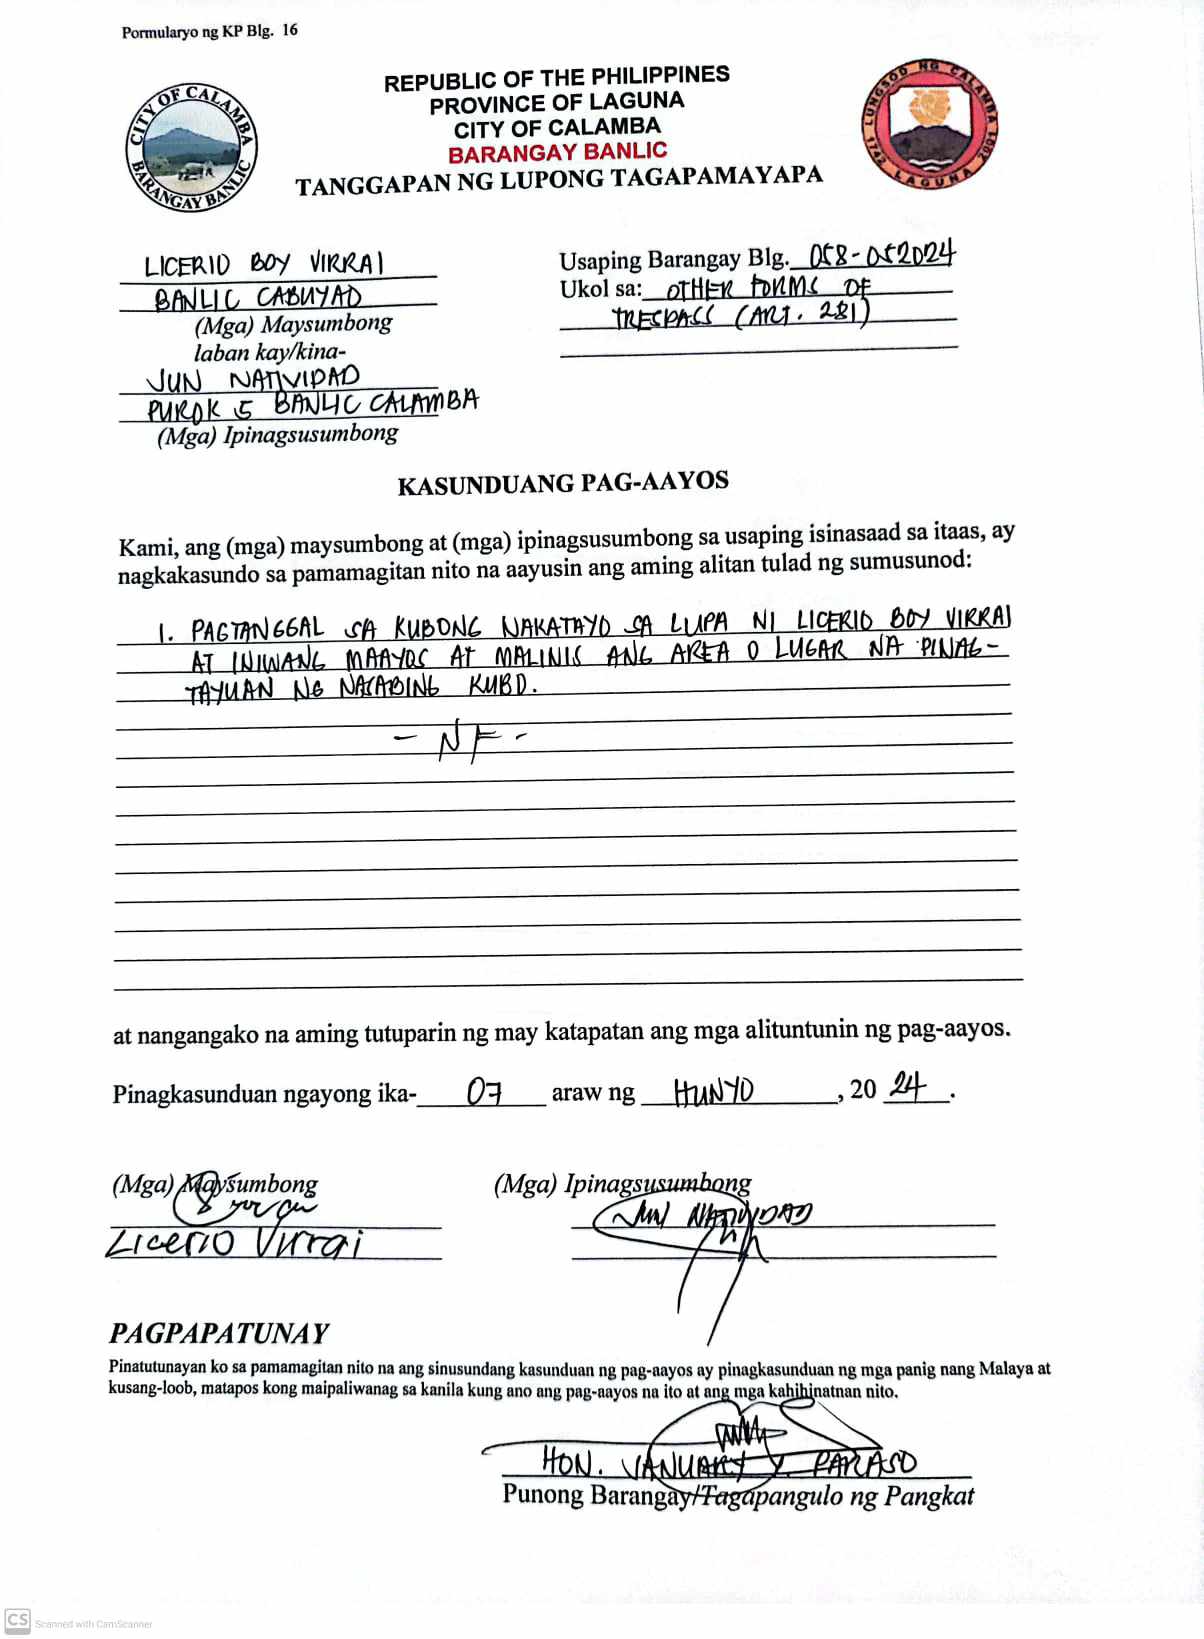 Pormularyo ng KP Blg. 16
REPUBLIC OF THE PHILIPPINES
PROVINCE OF LAGUNA
CITY OF CALAMBA
BARANGAY BANLIC
TANGGAPAN NG LUPONG TAGAPAMAYAPA
CITY OF CALAMBA
BARANGAY BANLIC
LUNGSOD NG CALAMBA
1742 LAGUNA 2001
LICERIO BOY VIRRAI
BANLIC CABUYAO
(Mga) Maysumbong
laban kay/kina-
JUN NATIVIDAD
PUROK 5 BANLIC CALAMBA
(Mga) Ipinagsusumbong
Usaping Barangay Blg. 058-052024
Ukol sa: OTHER FORMS OF
TRESPASS (ART. 281)
KASUNDUANG PAG-AAYOS
Kami, ang (mga) maysumbong at (mga) ipinagsusumbong sa usaping isinasaad sa itaas, ay
nagkakasundo sa pamamagitan nito na aayusin ang aming alitan tulad ng sumusunod:
1. PAGTANGGAL SA KUBONG NAKATAYO SA LUPA NI LICERIO BOY VIRRAI
AT INIWANG MAAYOS AT MALINIS ANG AREA O LUGAR NA PINAG-
TAYUAN NG NASABING KUBO.
- NF -
at nangangako na aming tutuparin ng may katapatan ang mga alituntunin ng pag-aayos.
Pinagkasunduan ngayong ika- 07 araw ng HUNYO, 20 24.
(Mga) Maysumbong
Licerio Virrai
(Mga) Ipinagsusumbong
JUN NATIVIDAD
PAGPAPATUNAY
Pinatutunayan ko sa pamamagitan nito na ang sinusundang kasunduan ng pag-aayos ay pinagkasunduan ng mga panig nang Malaya at
kusang-loob, matapos kong maipaliwanag sa kanila kung ano ang pag-aayos na ito at ang mga kahihinatnan nito.
HON. JANUARY Y. PARASO
Punong Barangay/Tagapangulo ng Pangkat
CS Scanned with CamScanner